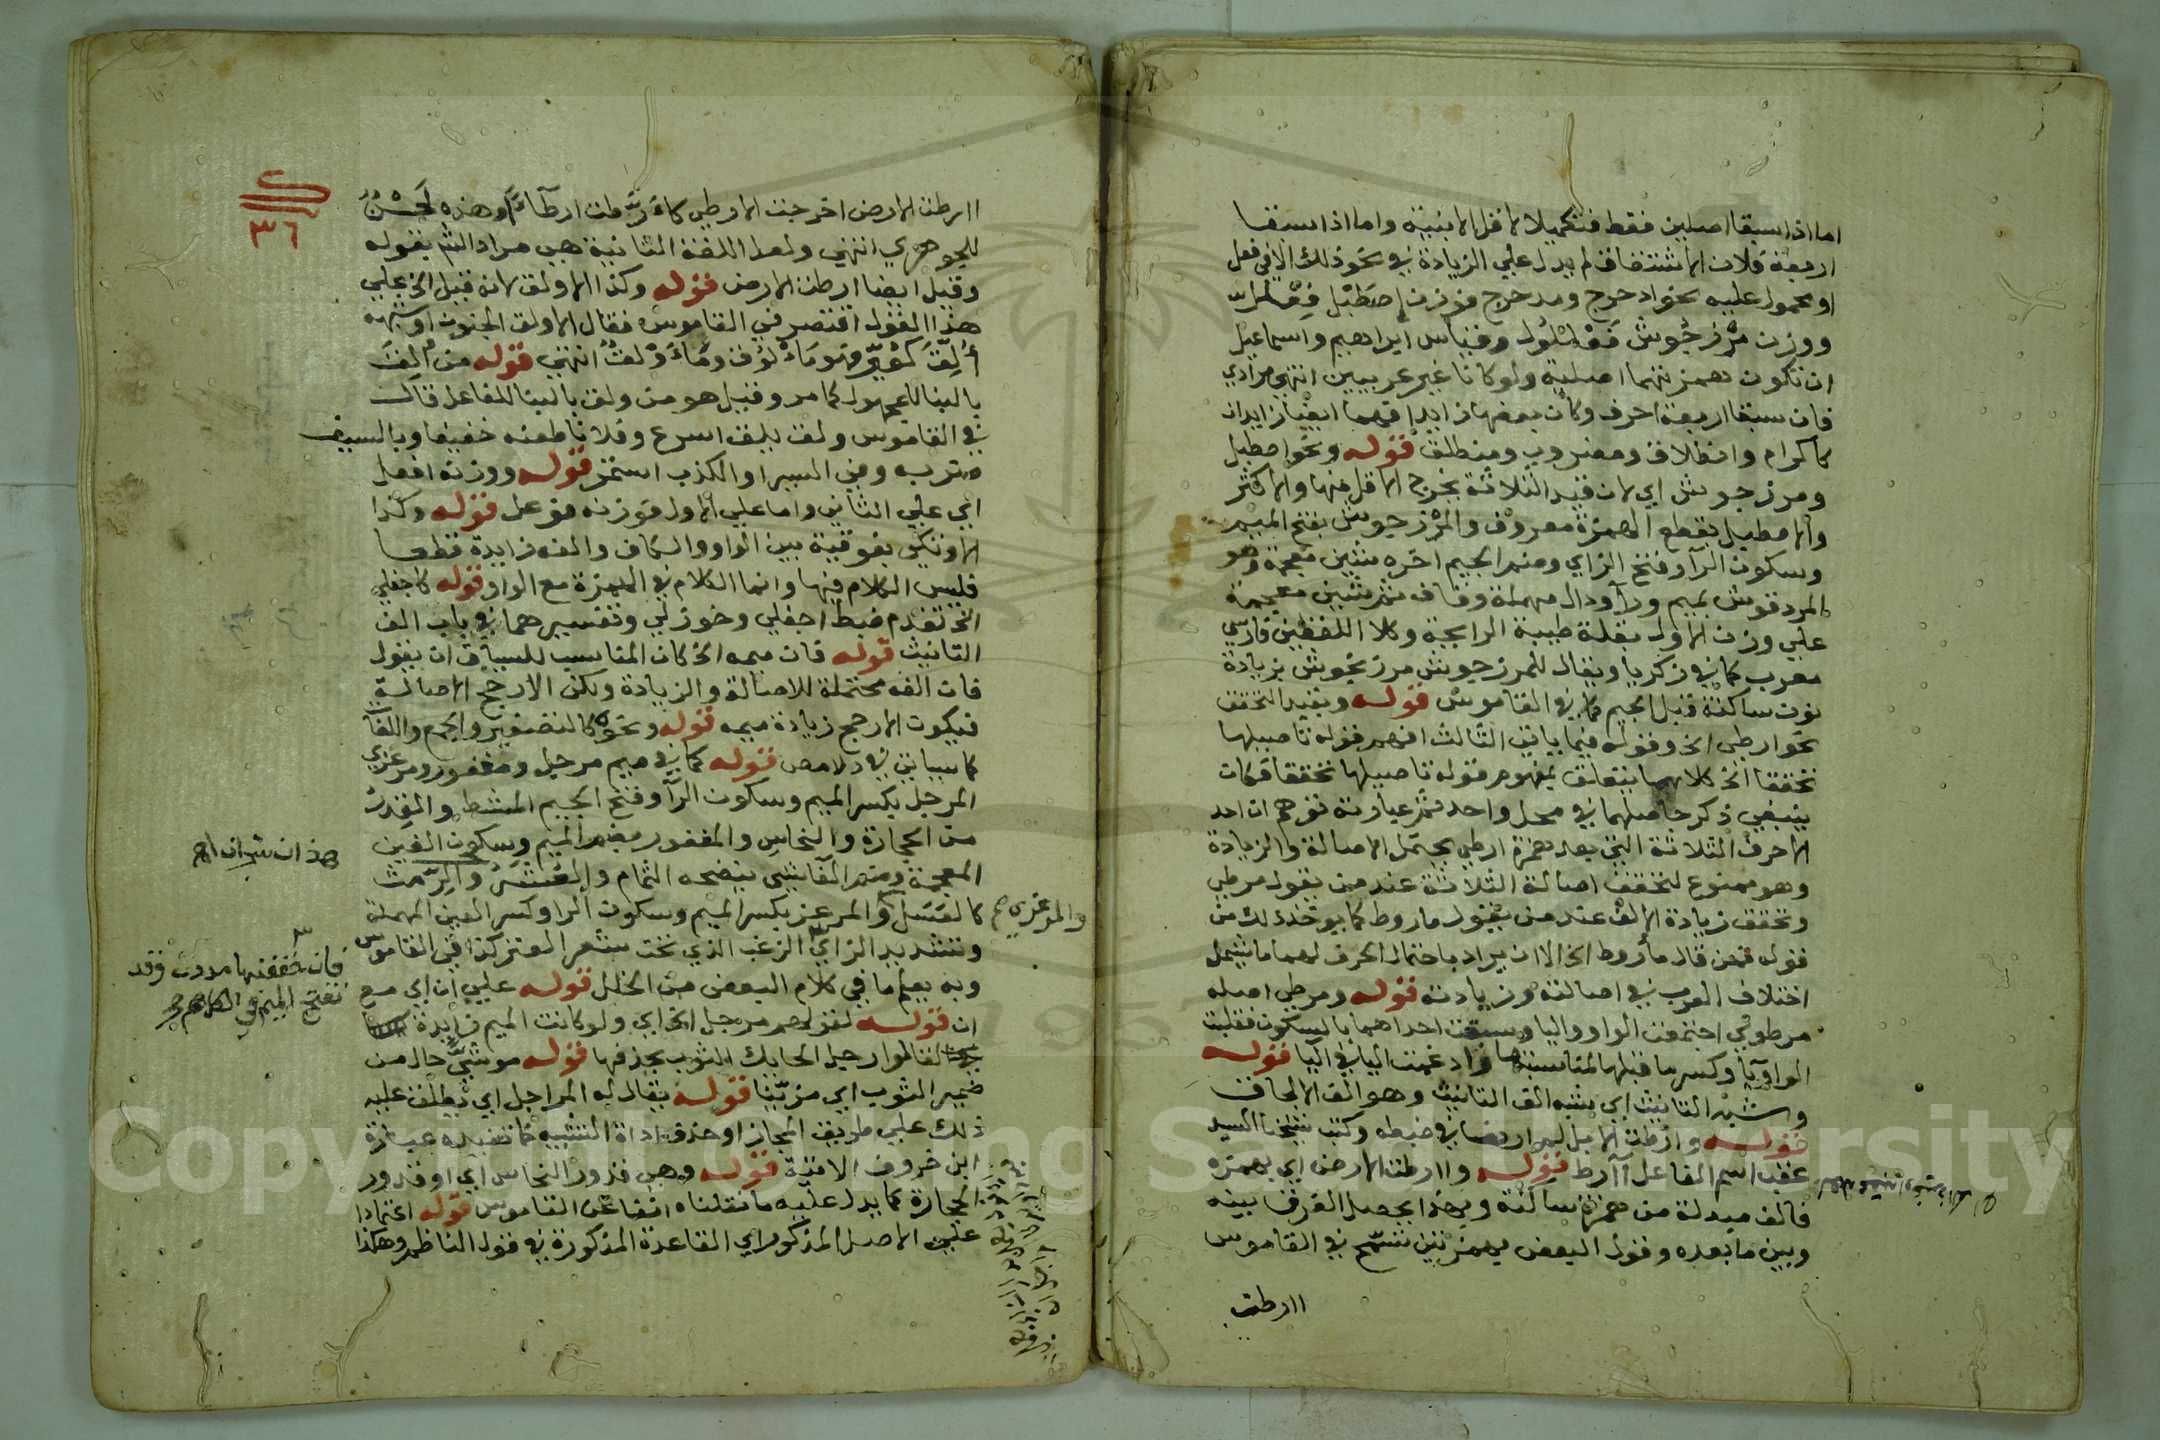 اما اذا سبقا اصلين فقط فتكميلا لاقل الابنية واما اذا سبقا
اربعة فلان الاشتقاق لم يدل علي الزيادة في نحو ذلك الا في فعل
او محمول عليه نحو ادحرج ومدحرج فوزن اصطبل فِعْلَلّ
ووزن مرزجوش فَعْلَلُول وقياس ابراهيم واسماعيل
ان تكون همزتهما اصلية ولو كانا غير عربيين انتهي مرادي
فان سبقا اربعة احرف وكان بعضها زايدا فهما ايضا زايدان
كاكرام وانطلاق ومضروب ومنطلق قوله ونحو اصطبل
ومرزجوش اي لان قيد الثلاثة يخرج الاقل منها والاكثر
والاصطبل بقطع الهمزة معروف والمرزجوش بفتح الميم
وسكون الرآ وفتح الزاي وضم الجيم اخره شين معجمة وهو
المردقوش بميم ورآ ودال مهملة وقاف ثم شين معجمة
علي وزن الاول بقلة طيبة الرايحة وكلا اللفظين فارسي
معرب كما في زكريا ويقال للمرزجوش مرزنجوش بزيادة
نون ساكنة قبل الجيم كما في القاموس قوله وبقيد التحقق
نحو ارطي الخ وقوله فيما ياتي الثالث افهم قوله تاصيلها
تحققا الخ كلاهما يتعلق بمفهوم قوله تاصيلها تحققا فكان
ينبغي ذكر حاصلهما في محل واحد ثم عبارته توهم ان احد
الاحرف الثلاثة التي بعد همزة ارطي يحتمل الاصالة والزيادة
وهو ممنوع لتحقق اصالة الثلاثة عند من يقول مرطي
وتحقق زيادة الالف عند من يقول ماروط كما يوخذ ذلك من
قوله فمن قال مأروط الخ الا ان يراد باحتمال الحرف لهما ما يشمل
اختلاف العرب في اصالته وزيادته قوله ومرطي اصله
مرطوي اجتمعت الواو واليا وسبقت احداهما بالسكون فقلبت
الواو يآ وكسر ما قبلها لمناسبتها وادغمت اليا في اليا قوله
وشبه التانيث اي شبه الف التانيث وهو الف الالحاق
قوله وارطت الابل
عقب اسم الفاعل آرط قوله وارطت الارض اي بهمزة
فالف مبدلة من همزة ساكنة وبهذا يحصل الفرق بينه
وبين ما بعده وقول البعض بهمزتين تسمح في القاموس
اارطت
٣٦
اارطت الارض اخرجت الارطي وهذه لحن
للجوهري انتهي ولعل اللغة الثانية هي مراد الش بقوله
وقيل ايضا ارطت الارض قوله وكذا الاولق لانه قيل الخ علي
هذا القول اقتصر في القاموس فقال الاولق الجنون او شبهه
انتهي قوله من اُلِقَ
بالبنا للمجهول كما مر وقيل هو من ولق بالبنا للفاعل قال
في القاموس ولق يلق اسرع وفلانا طعنه خفيفا وبالسيف
ضرب وفي السير او الكذب استمر قوله ووزنه افعل
اي علي الثاني واما علي الاول فوزنه فوعل قوله وكذا
الاوتكي بفوقية بين الواو والكاف والفه زايدة قطعا
فليس الكلام فيها وانما الكلام في الهمزة مع الواو قوله كاجفلي
الخ تقدم ضبط اجفلي وخوزلي وتفسيرهما في باب الف
التانيث قوله فان ميمه الخ كان المناسب للسياق ان يقول
فان الفه محتملة للاصالة والزيادة ولكن الارجح الاصالة
فيكون الارجح زيادة ميمه قوله ونحوه كالتصغير والجمع واللقآ
كما سياتي في دلامص قوله كما في ميم مرجل ومغفور ومرعزي
المرجل بكسر الميم وسكون الرآ وفتح الجيم المشط والقدر
من الحجارة والنحاس والمغفور بضم الميم وسكون الغين
المعجمة وضم الفآ شي ينضحه الثمام والعشر والرمث
كالعسل والمرعز بكسر الميم وسكون الرا وكسر العين المهملة
وتشديد الزاي الزغب الذي تحت شعر العنز كذا في القاموس
وبه يعلم ما في كلام البعض من الخلل قوله علي ان اي مع
ان قوله لقولهم مرجل الخ اي ولو كانت الميم زايدة
لقالوا رجل الحايك الثوب بحذفها قوله موشي حال من
ضمير الثوب اي مزينا قوله يقال له المراجل اي يطلق عليه
ذلك علي طريق المجاز او حذف اداة التشبيه كما تفيده عبارة
ابن خروف الاتية قوله وهي قدور النحاس اي او قدور
الحجارة كما يدل عليه ما نقلناه انفا عن القاموس قوله اعتمادا
علي الاصل المذكور اي القاعدة المذكورة في قول الناظم وهكذا
والمرعزي صح
فان خففتها مددت وقد
تفتح الميم في الكل صح
Copyright © King Saud University
1957